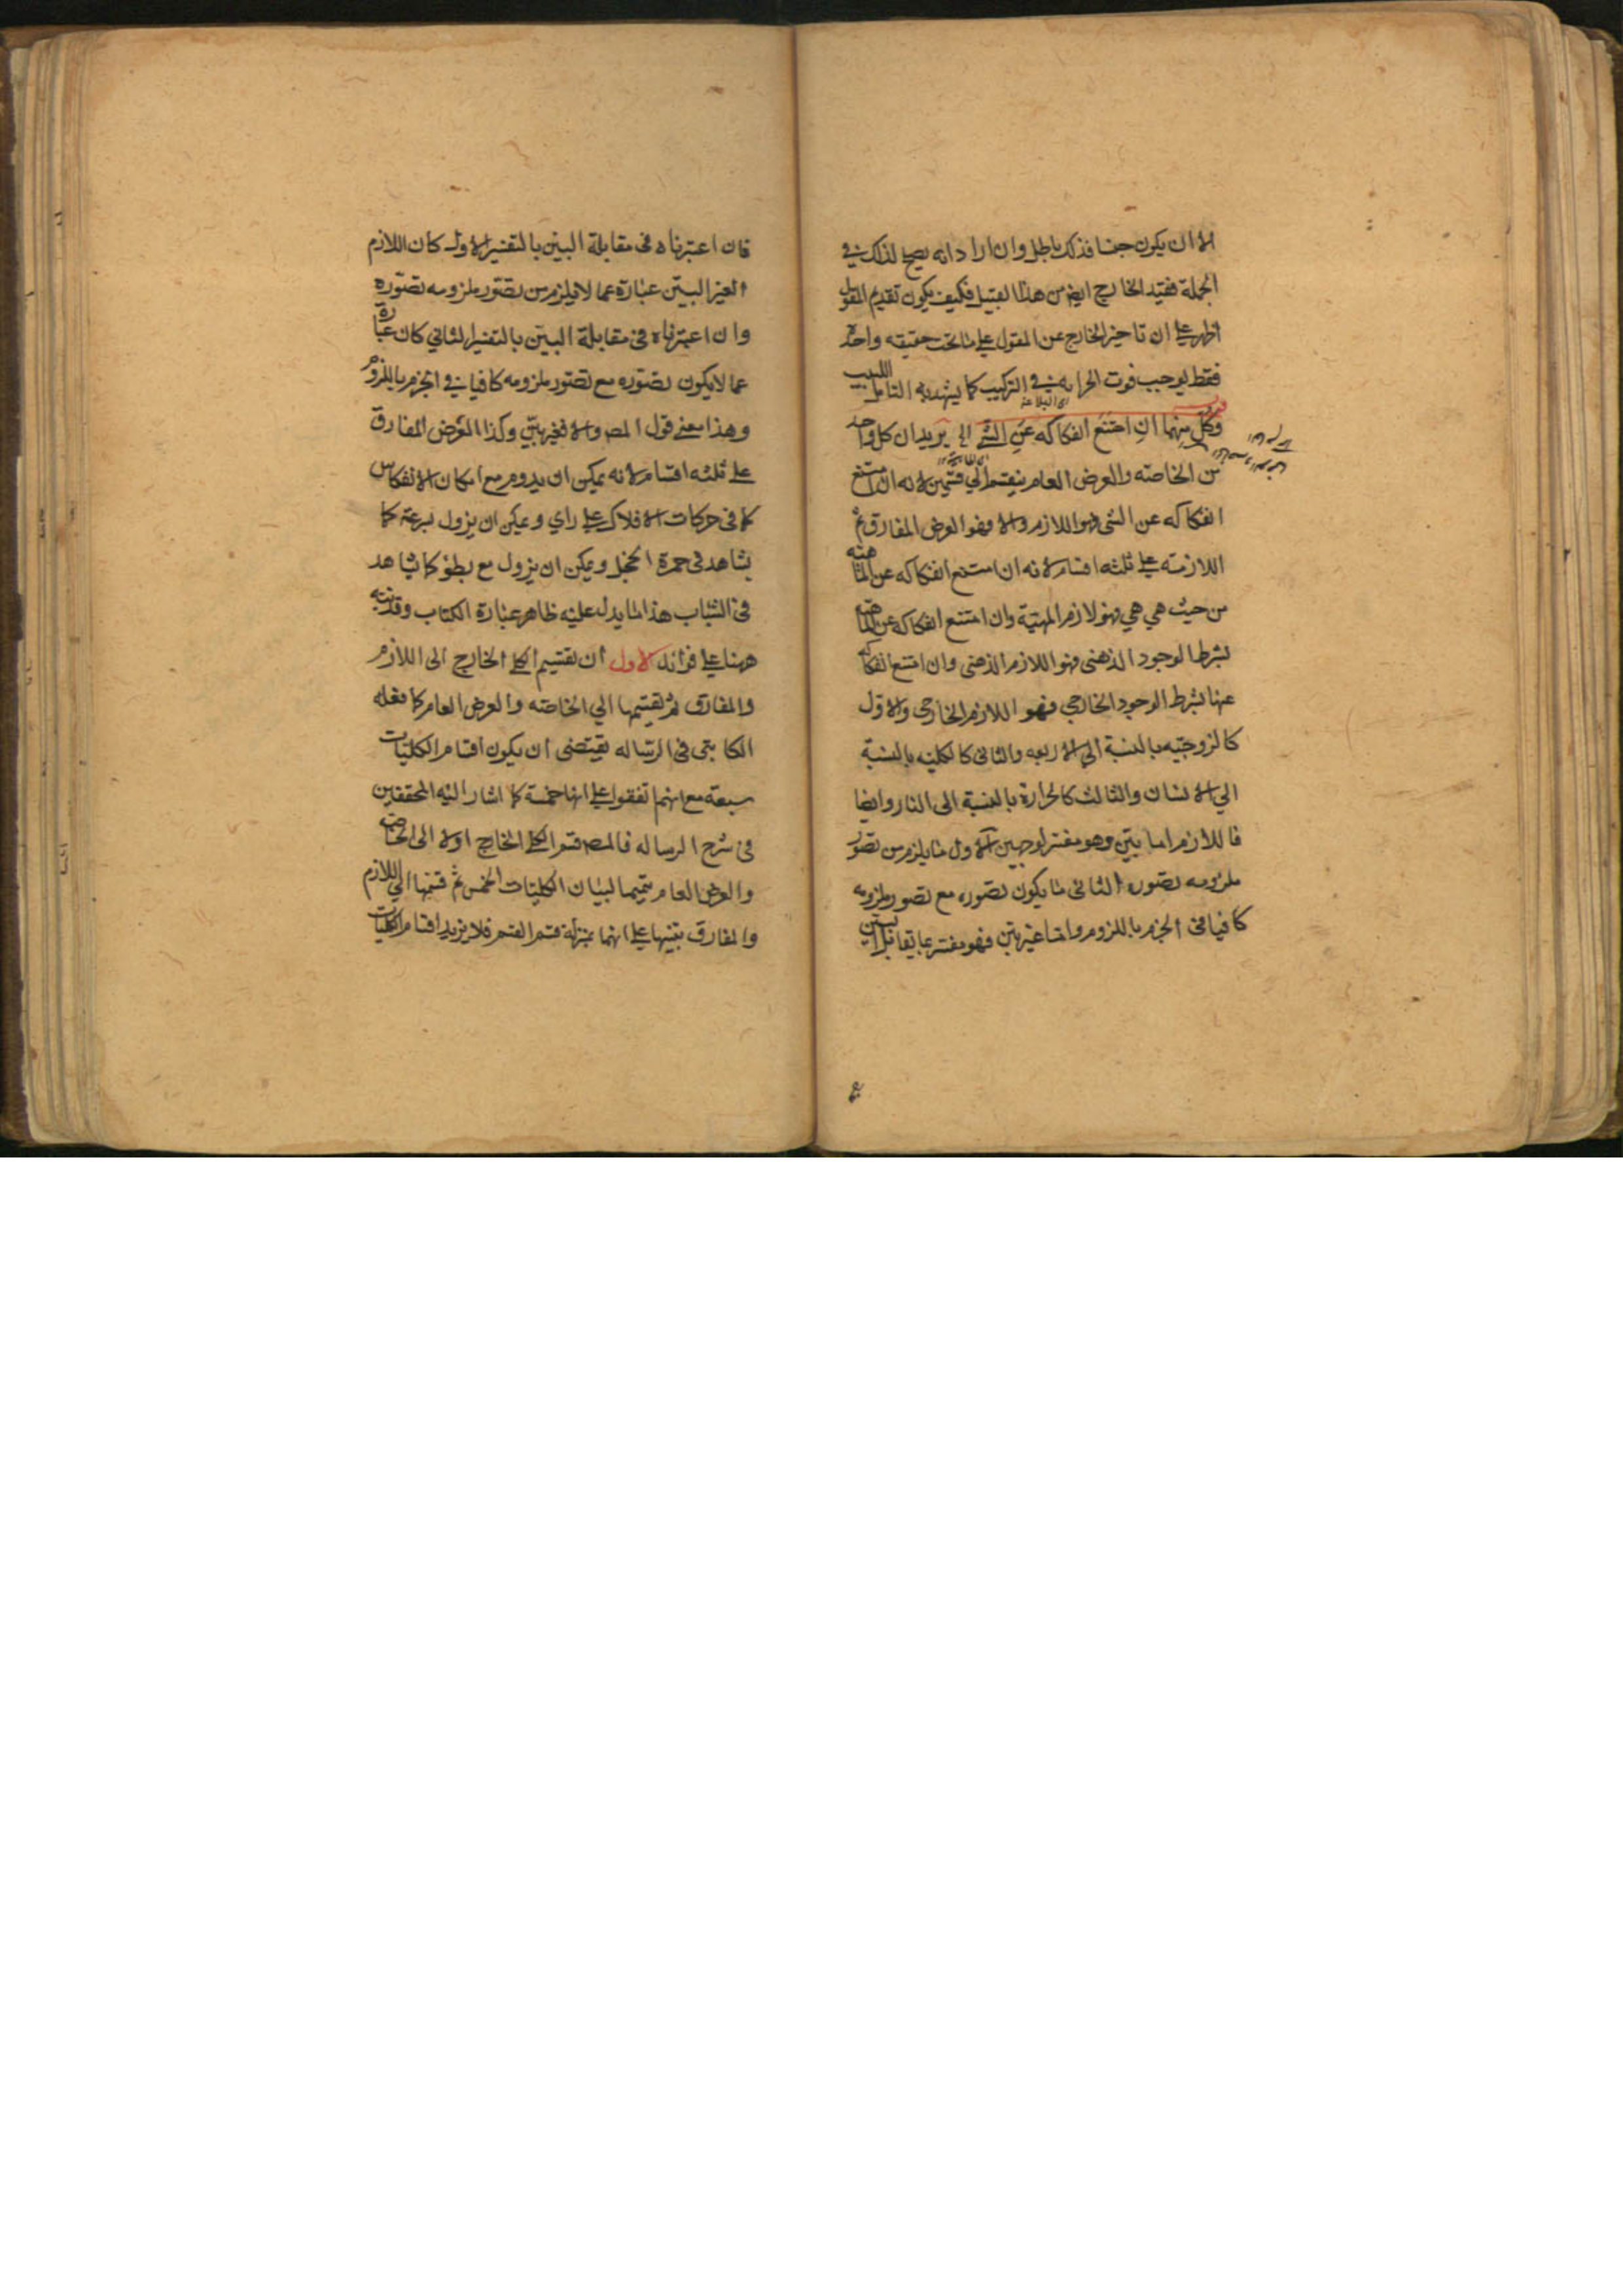 الا ان يكون جنسا فذلك باطل وان اراد انه يصلح لذلك في
الجملة فقيد الخارج ايضا من هذا القبيل فكيف يكون تقديم المقول
اظهر على ان تاخير الخارج عن المقول على ما تحت حقيقه واحدة
فقط يوجب فوت الجزاله في التركيب كما يشهد به التامل اللبيب
اى البلاغة
وكل منهما ان امتنع انفكاكه عن الشئ الى يريد ان كل واحد
من الخاصة والعرض العام ينقسم الي قسمين لانه ان امتنع
انفكاكه عن الشئ فهو اللازم والا فهو العرض المفارق ثم
اللازمة على ثلثه اقسام لانه ان امتنع انفكاكه عن الماهية
من حيث هي هي فهو لازم المهية وان امتنع انفكاكه عن الماهية
بشرط الوجود الذهنى فهو اللازم الذهنى وان امتنع انفكاكه
عنها بشرط الوجود الخارجي فهو اللازم الخارجى والاول
كالزوجيه بالنسبة الى الاربعه والثانى كالكليه بالنسبة
الي الانسان والثالث كالحرارة بالنسبة الى النار وايضا
فاللازم اما بيّن وهو مفسر لوجهين الاول ما يلزم من تصوّر
ملزومه تصوره الثانى ما يكون تصوره مع تصور ملزومه
كافيا فى الجزم باللزوم واما غير بيّن فهو مفسر بما يقابل البين
فان اعتبرناه فى مقابلة البين بالتفسير الاول كان اللازم
الغير البيّن عبارة عما لا يلزم من تصّور ملزومه تصّوره
وان اعتبرناه فى مقابلة البيّن بالتفسير الثاني كان عبارة
عما لا يكون تصّوره مع تصّور ملزومه كافيا في الجزم باللزوم
وهذا معنى قول المص والا فغير بيّن وكذا العرض المفارق
على ثلثه اقسام لانه يمكن ان يدوم مع امكان الانفكاك
كما فى حركات الافلاك على راي ويمكن ان يزول بسرعة كما
يشاهد فى حمرة الخجل ويمكن ان يزول مع بطؤ كما يشاهد
فى الشباب هذا ما يدل عليه ظاهر عبارة الكتاب وقد نبه
ههنا على فوائد الاول ان تقسيم الكلي الخارج الى اللازم
والمفارق ثم تقسيمها الي الخاصه والعرض العام كما فعله
الكاتبى فى الرساله يقتضى ان يكون اقسام الكليات
سبعة مع انهم اتفقوا على انها خمسة كما اشار اليه المحققين
فى شرح الرساله فالمص قسم الكلي الخارج اولا الى الخاصة
والعرض العام تتميما لبيان الكليّات الخمس ثم قسمها الي اللازم
والمفارق تنبيها على انهما بمنزلة قسم القسم فلا يزيد اقسام الكليات